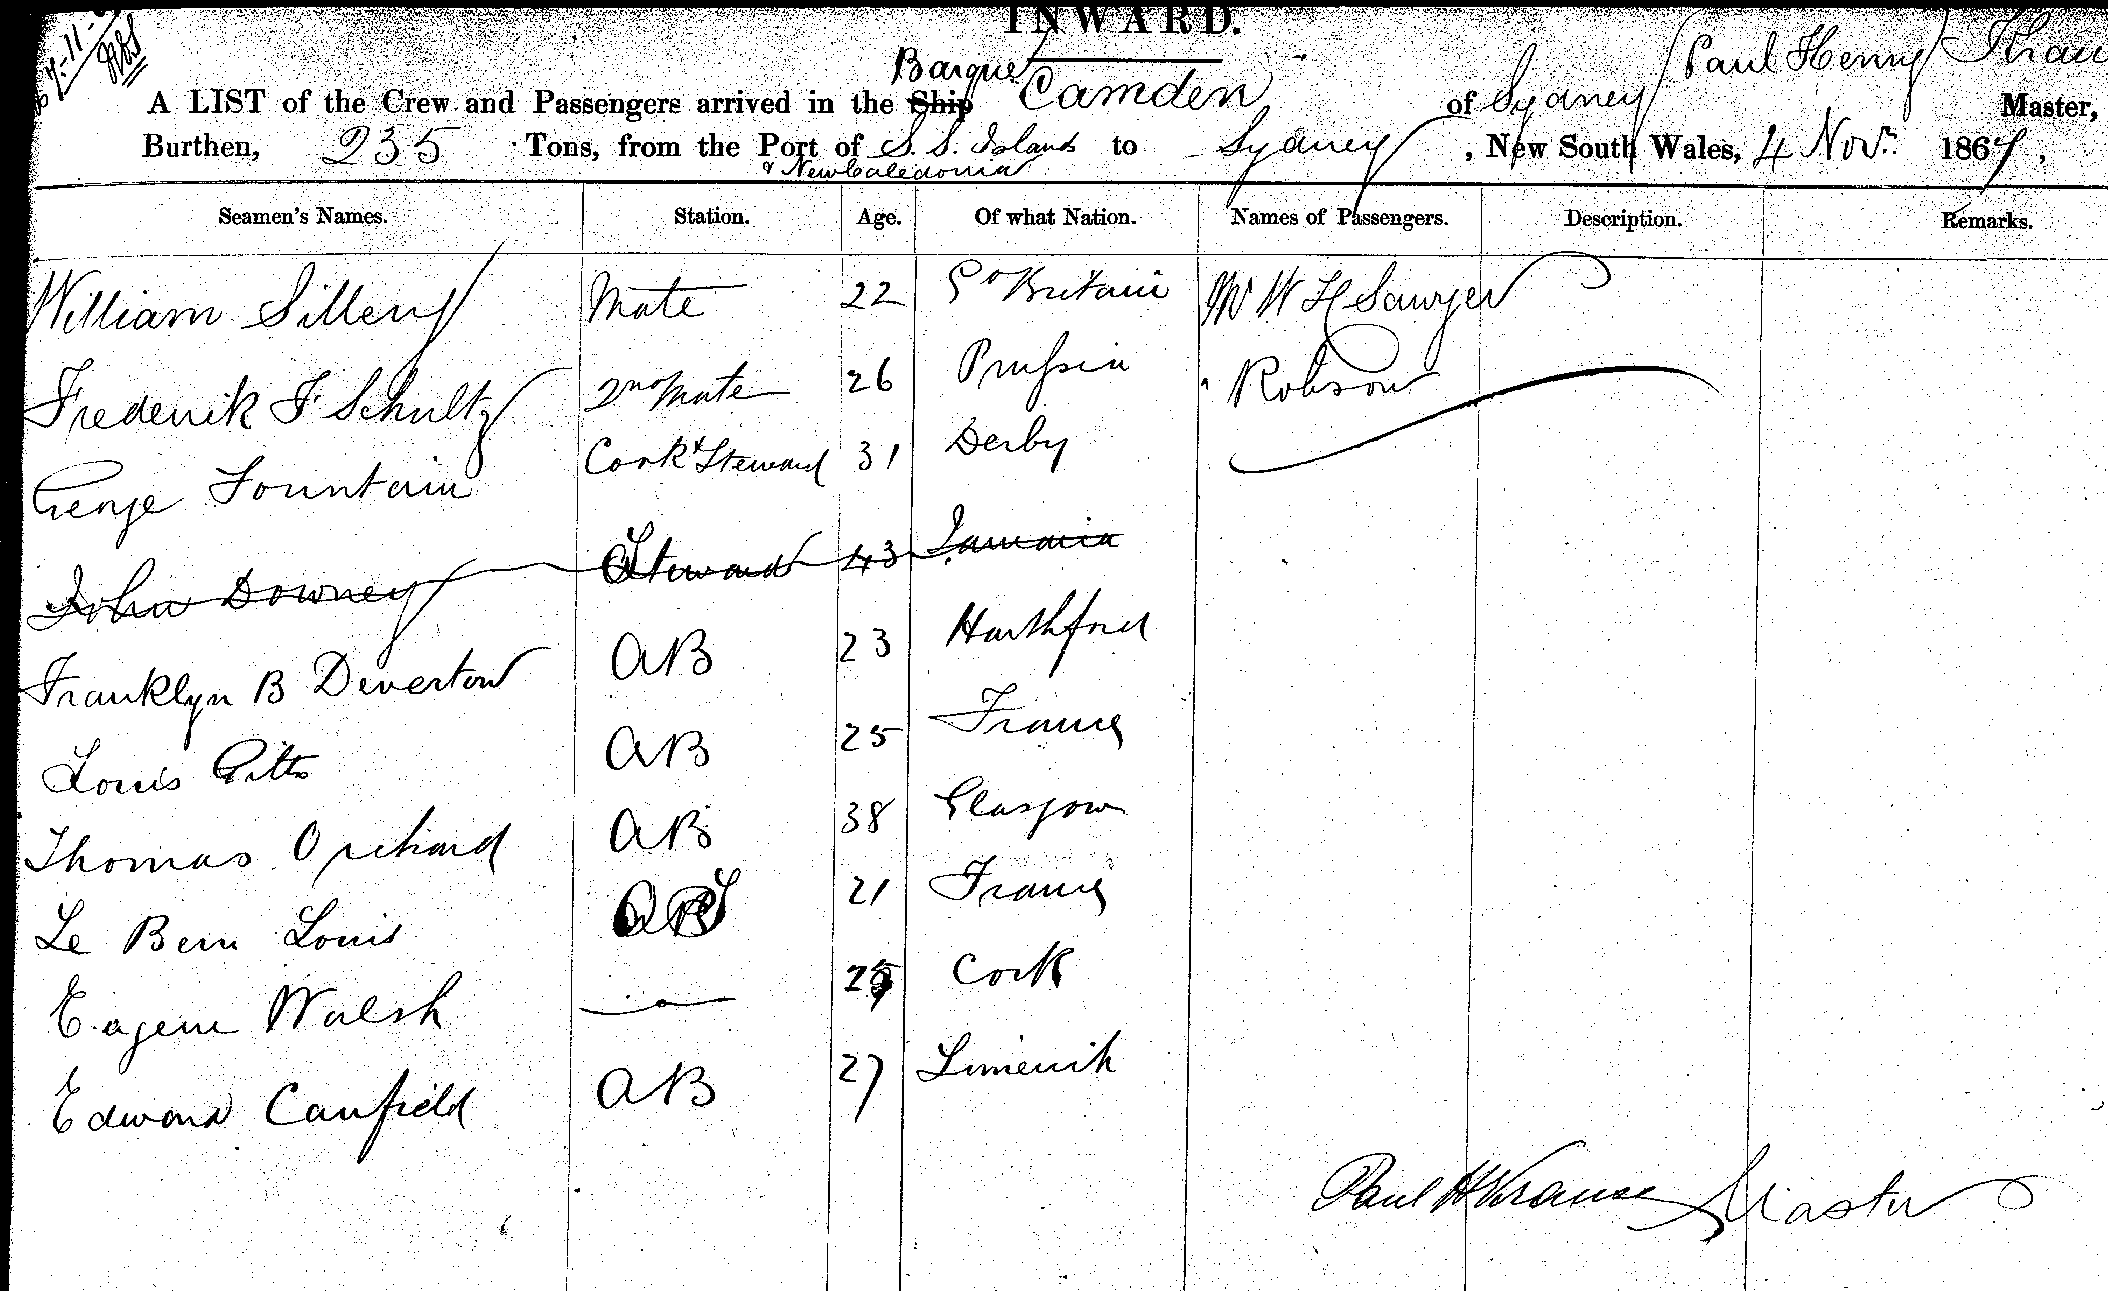 INWARD.
Barque
A LIST of the Crew and Passengers arrived in the Ship Camden of Sydney Paul Henry
Master,
Burthen, 235 Tons, from the Port of S. S. Islands to Sydney, New South Wales, 4 Novr. 1867,
& New Caledonia
Seamen's Names. Station. Age. Of what Nation. Names of Passengers. Description. Remarks.
William Silleny Mate 22 Gt Britain Mr W H Sawyer
Frederik F Schultz 2nd Mate 26 Prussia " Robson
George Fountain Cook & Steward 31 Derby
John Downey Steward 43 Jamaica
Franklyn B Deverton AB 23 Harthford
Louis Pitto AB 25 France
Thomas Orchard AB 38 Glasgow
Le Bem Louis 21 France
Eugene Walsh Cork
Edward Canfield AB 27 Limerick
Paul H Krause Master